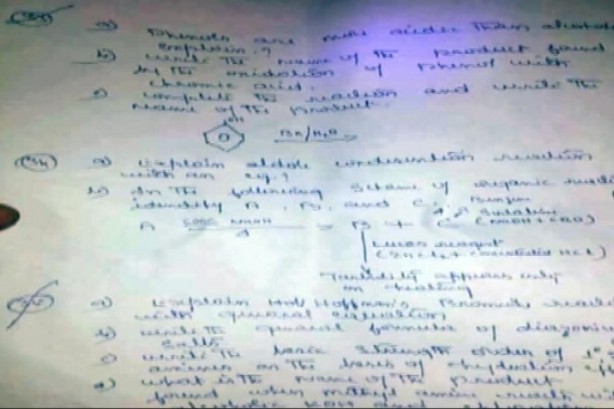 a) Phenols are more acidic than alcohols
explain.?
b) write the name of the product found
by the oxidation of phenol with
chromic acid.
c) complete the reaction and write the
name of the product.
OH
Br₂/H₂O
a) Explain aldole condensation reaction
with an eg.?
b) In the following scheme of organic reacti
identify A, B, and C.
A 50% NaOH B + C
Lucas reagent
(ZnCl₂ + concentrated HCl)
Turbidity appears only
on heating
a) Explain Hoffman's Bromide reacti
with general equation
b) write the general formula of diazoni
salts.
c) write the basic strength order of 1°
amines on the basis of hydration
d) what is the name of the product
found when methyl amine reacts with
alcoholic KOH and